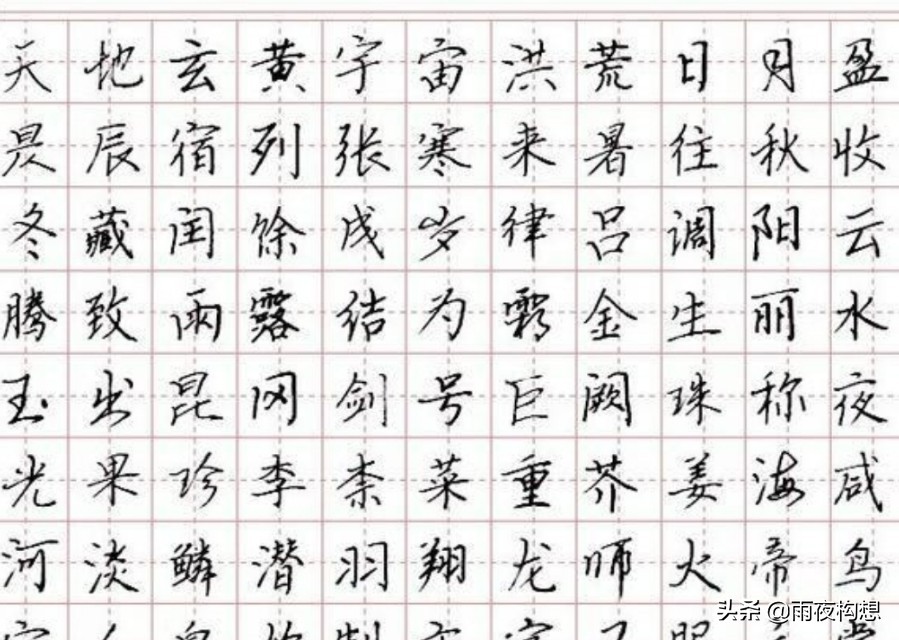 天地玄黄宇宙洪荒日月盈
昃辰宿列张寒来暑往秋收
冬藏闰馀成岁律吕调阳云
腾致雨露结为霜金生丽水
玉出昆冈剑号巨阙珠称夜
光果珍李柰菜重芥姜海咸
河淡鳞潜羽翔龙师火帝鸟
头条 @雨夜构想